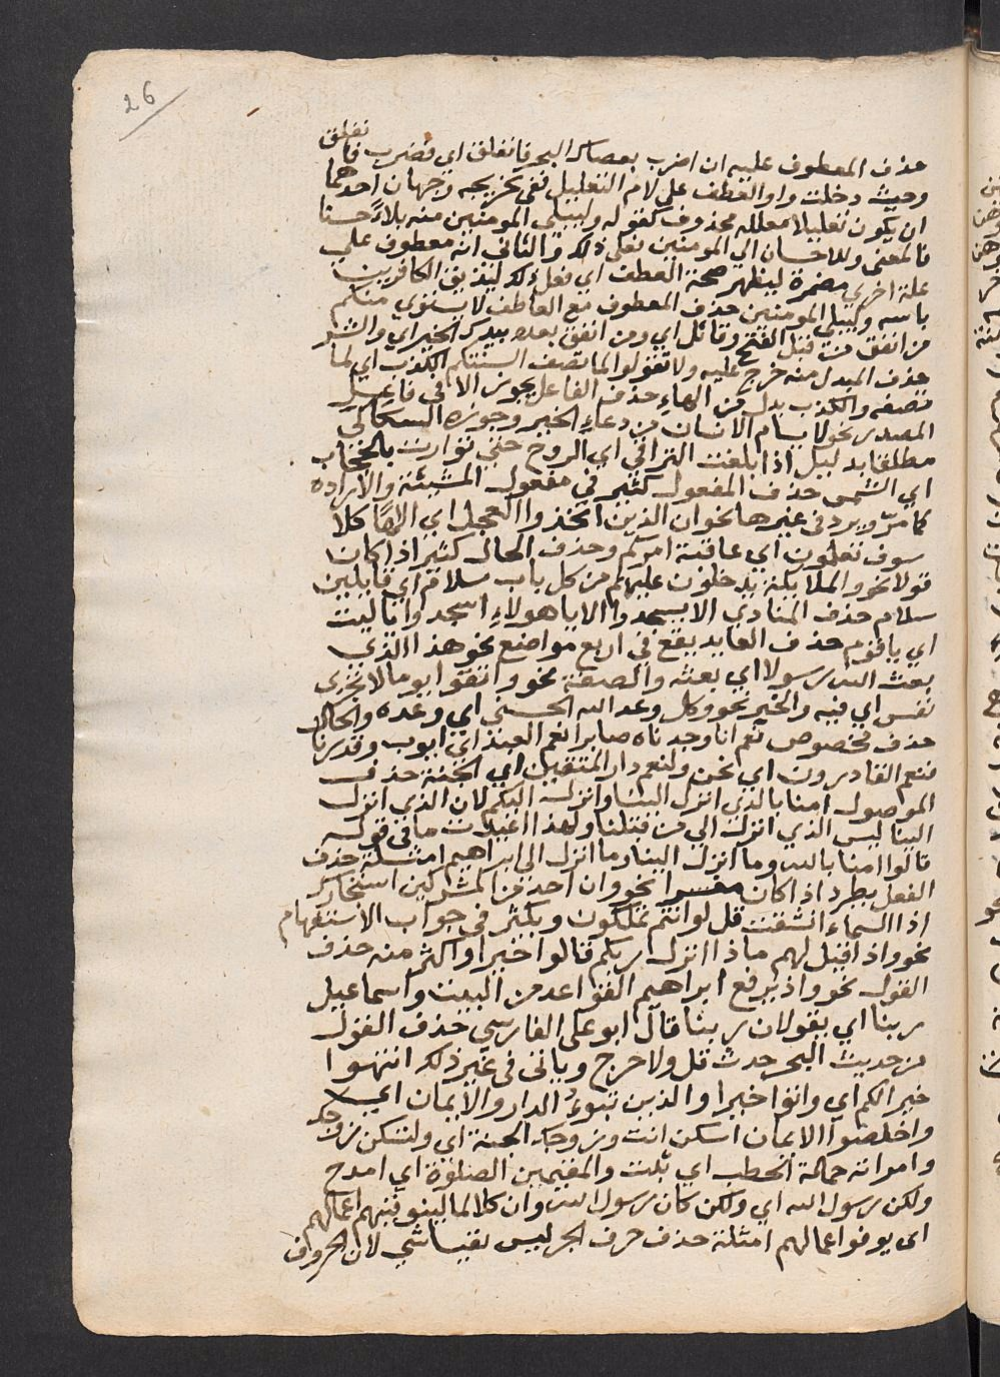 26
حذف المعطوف عليه ان اضرب بعصاك البحر فانفلق اي فضرب فانفلق
وحيث دخلت واو العطف على لام التعليل ففي تخريجه وجهان احدهما
ان يكون تعليلا معلله محذوف كقوله وليبلي المومنين منه بلاءً حسنا
فالمعنى وللاحسان الى المومنين فعل ذلك والثاني انه معطوف على
علة اخرى مضمرة ليظهر صحة العطف اي فعل ذلك ليذيق الكافرين
باسه وليبلي المومنين حذف المعطوف مع العاطف لا يستوي منكم
من انفق من قبل الفتح وقاتل اي ومن انفق بعده بيدك الخير اي والشر
حذف المبدل منه خرج عليه ولا تقولوا لما تصف السنتكم الكذب اي لما
تصفه والكذب بدل من الهاء حذف الفاعل يجوز الا في فاعل
المصدر نحو لا يسام الانسان من دعاء الخير وجوزه السكاكي
مطلقا بدليل اذا بلغت التراقي اي الروح حتى توارت بالحجاب
اي الشمس حذف المفعول كثير في مفعول المشيئة والاراده
كما مرّ ويرد في غيرها نحو ان الذين اتخذوا العجل اي الاها كلا
سوف تعلمون اي عاقبة امركم وحذف الحال كثير اذا كان
قولا نحو والملايكة يدخلون عليهم من كل باب سلام اي قايلين
سلام حذف المنادي الا يسجدوا الا يا هولاء اسجدوا يا ليت
اي يا قوم حذف العايد يقع في اربع مواضع نحو هذا الذي
بعث الله رسولا اي بعثه والصفة نحو واتقوا يوما لا تجزى
نفس اي فيه والخبر نحو وكل وعد الله الحسنى اي وعده والحال
حذف مخصوص نعم انا وجدناه صابرا نعم العبد اي ايوب وقدرنا
فنعم القادرون اي نحن ولنعم دار المتقين اي الجنة حذف
الموصول امنا بالذي انزل الينا وانزل اليكم لان الذي انزل
الينا ليس الذي انزل الي من قبلنا ولهذا اعيدت ما في قوله
قالوا امنا بالله وما انزل الينا وما انزل الى ابراهيم امثلة حذف
الفعل يطرد اذا كان مفسرا نحو وان احد من المشركين استجارك
اذا السماء انشقت قل لو انتم تملكون ويكثر في جواب الاستفهام
نحو واذا قيل لهم ماذا انزل ربكم قالوا خيرا واكثر منه حذف
القول نحو واذ يرفع ابراهيم القواعد من البيت واسماعيل
ربنا اي يقولان ربنا قال ابو على الفارسي حذف القول
من حديث البحر حدث قل ولا حرج وياتى في غير ذلك انتهوا
خيرا لكم اي واتوا خيرا والذين تبوءُ الدار والايمان اي
واخلصوا الايمان اسكن انت وزوجك الجنة اي ولتسكن زوجك
وامراته حمالة الحطب اي بلت والمقيمين الصلوة اي امدح
ولكن رسول الله اي ولكن كان رسول الله وان كلا لما ليوفينهم اعمالهم
اى يوفوا اعمالهم امثلة حذف حرف الجر ليس بقياسي لان الحروف